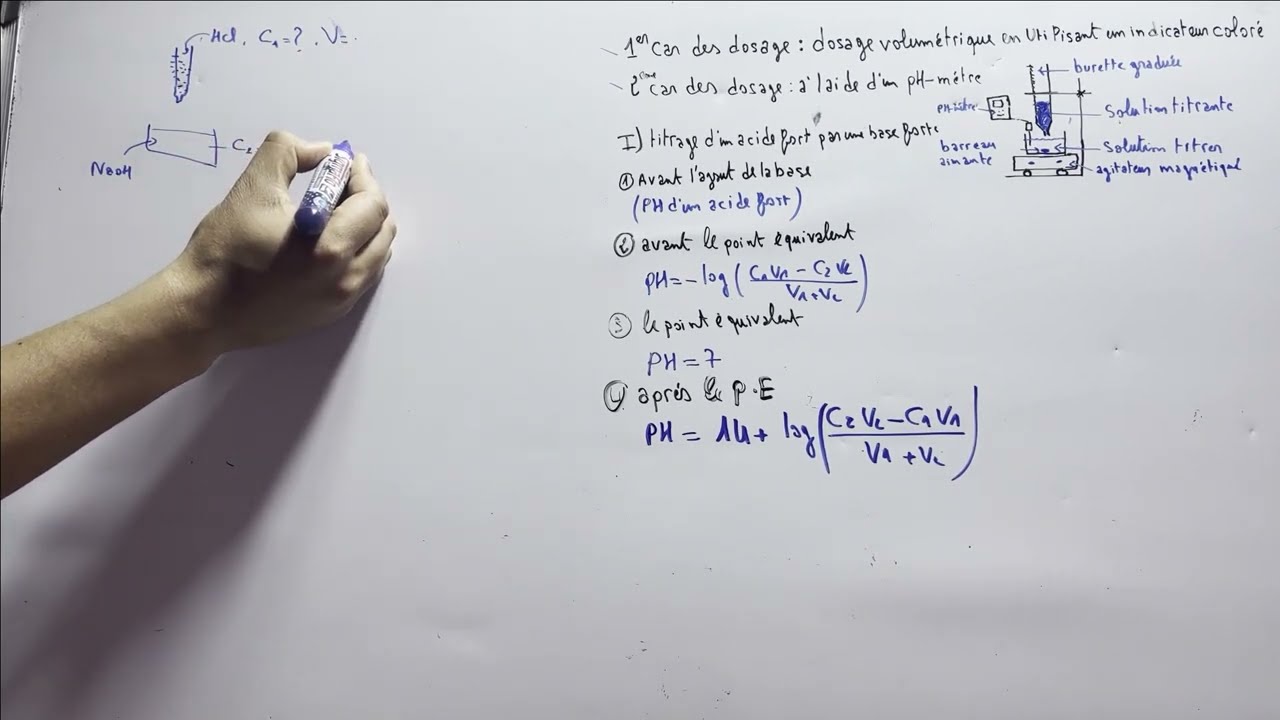 Hcl, C₁=?, V=.
C₂
NaOH
1er Car des dosage : dosage volumétrique en utilisant un indicateur coloré
2ème car des dosage : a' l'aide d'un pH-métre
burette graduée
PH-mètre
Solution titrante
barreau aimante
Solution titren
agitateur magnétique
I) titrage d'im acide fort par une base forte
① Avant l'ajout de la base
(PH d'un acide fort)
② avant le point équivalent
PH=-log(C₁V₁ - C₂V₂ / V₁+V₂)
③ le point équivalent
PH = 7
④ aprés le P.E
PH = 14 + log(C₂V₂ - C₁V₁ / V₁+V₂)